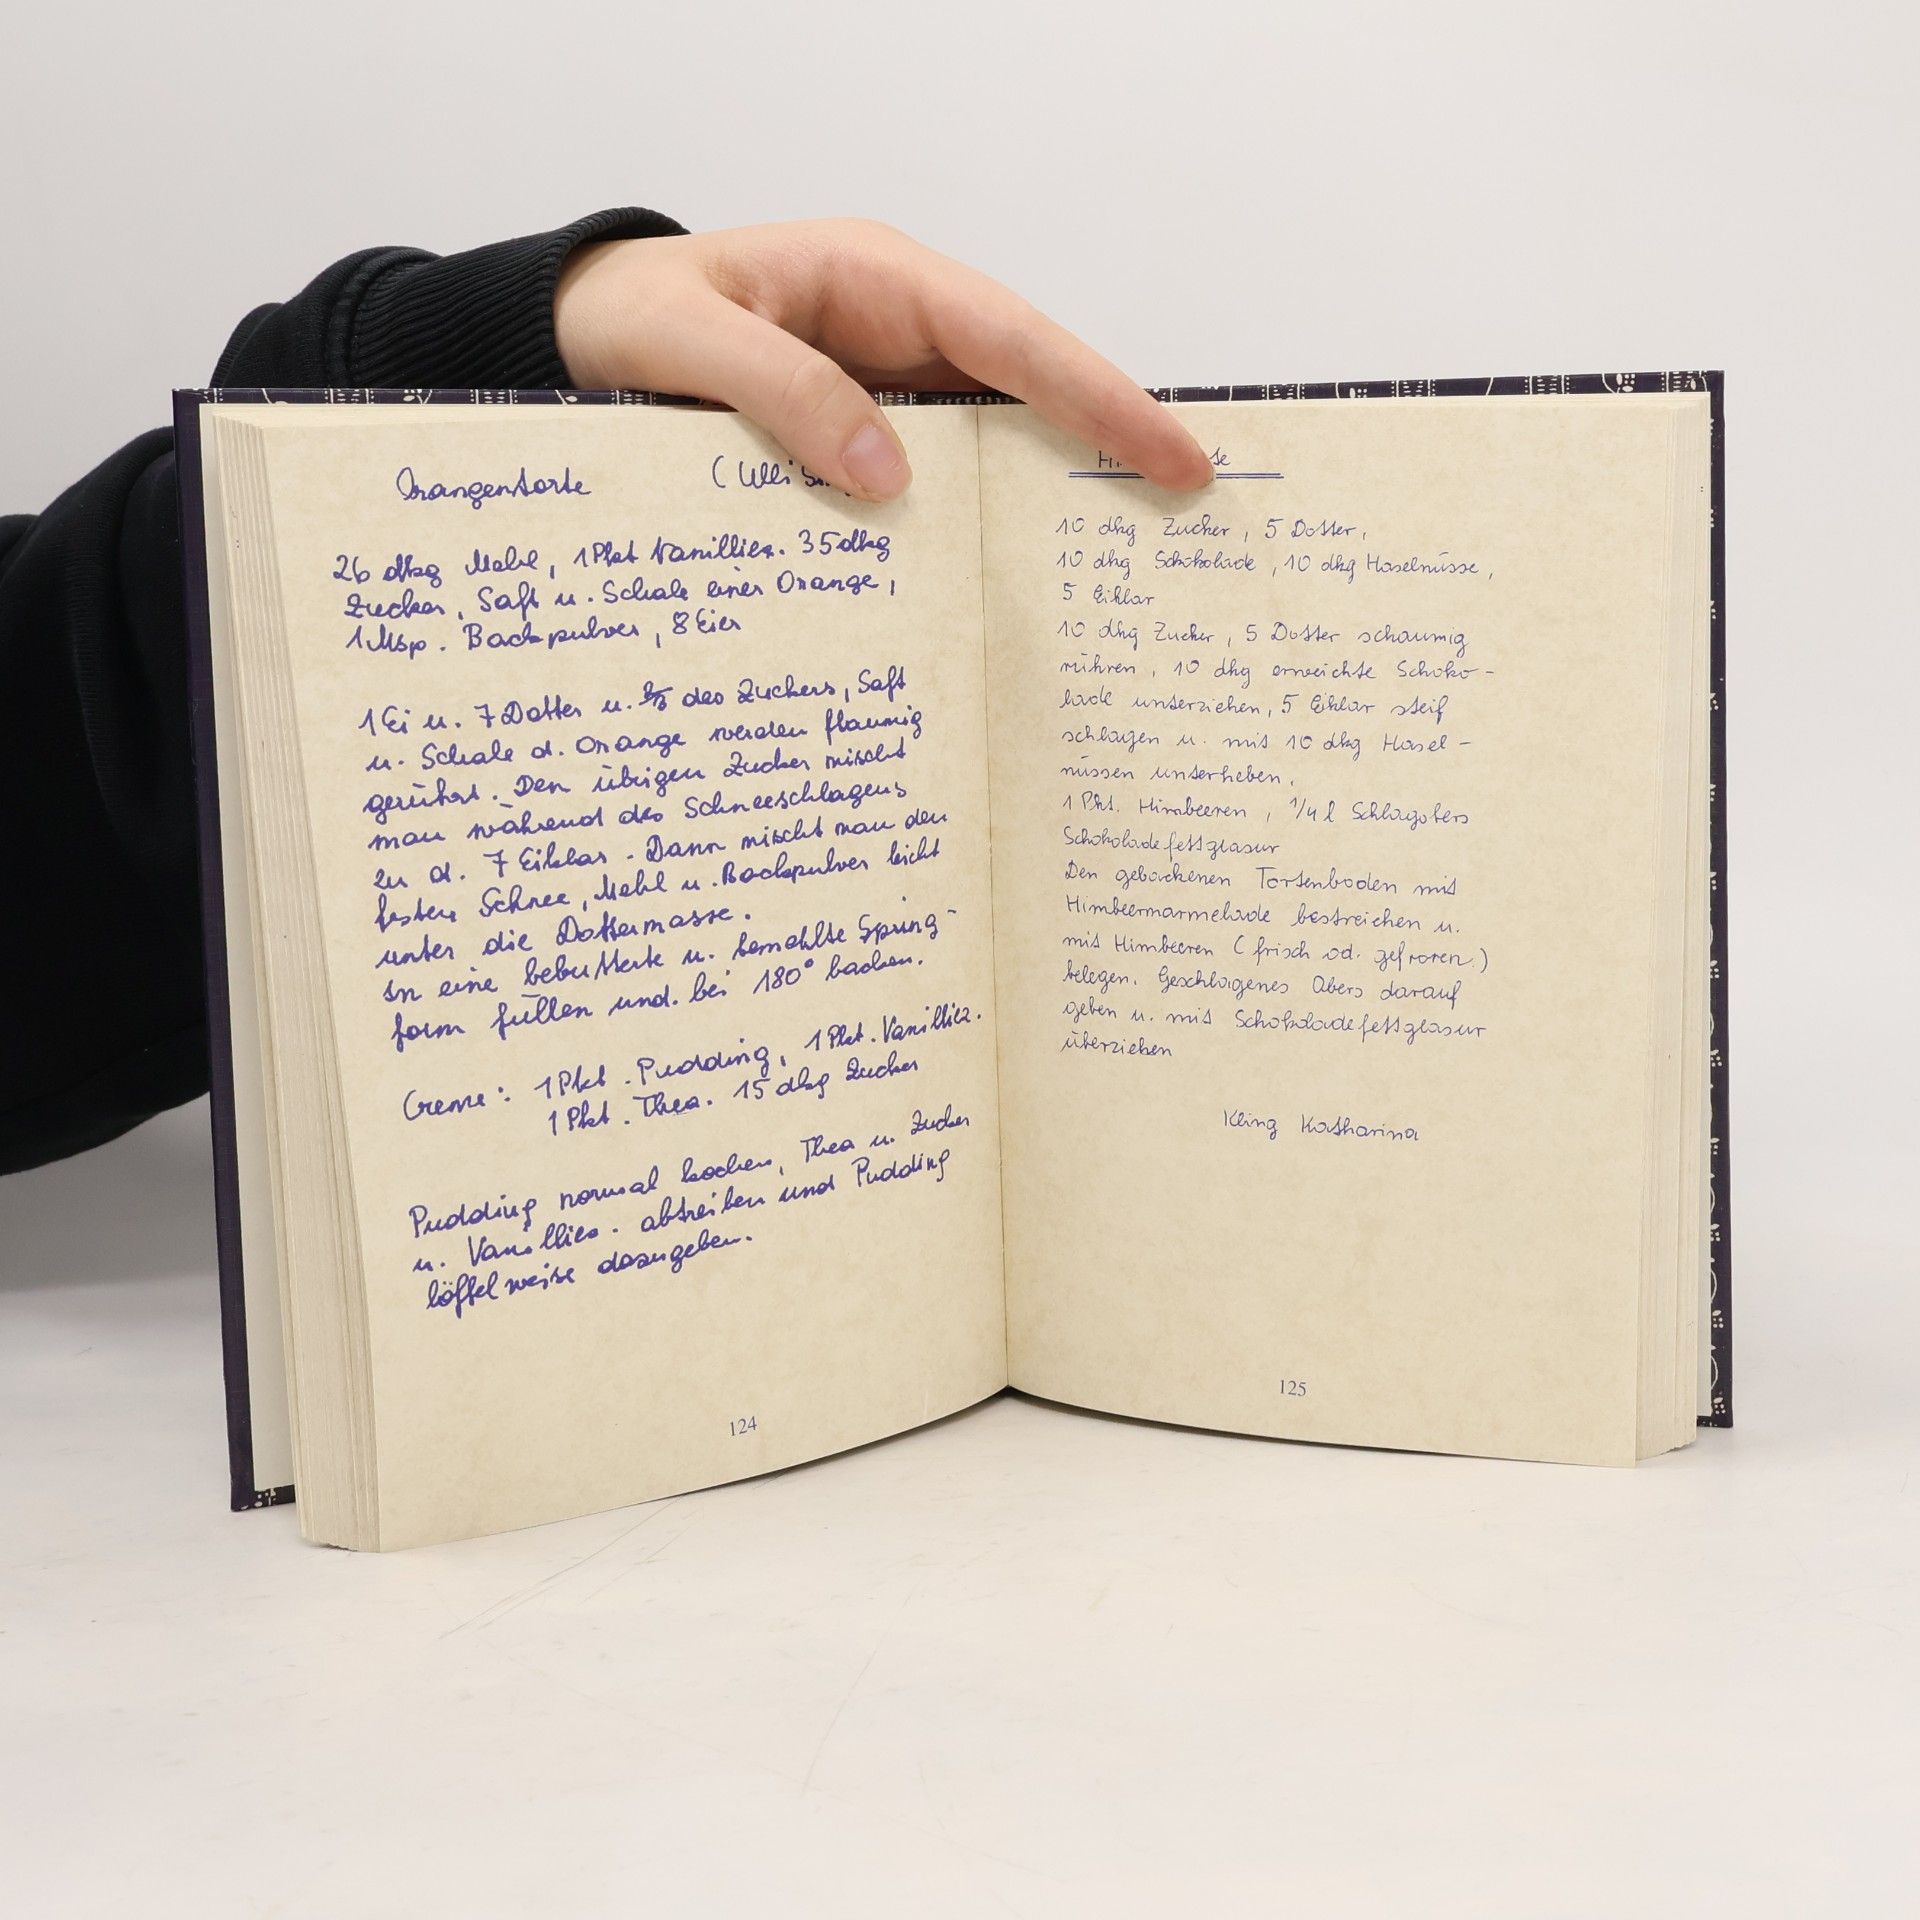 Orangentorte (Ulli
26 dkg Mehl, 1 Pkt Vanilliez. 35 dkg
Zucker, Saft u. Schale einer Orange,
1 Msp. Backpulver, 8 Eier
1 Ei u. 7 Dotter u. 2/3 des Zuckers, Saft
u. Schale d. Orange werden flaumig
gerührt. Den übrigen Zucker mischt
man während des Schneeschlagens
zu d. 7 Eiklar. Dann mischt man den
festen Schnee, Mehl u. Backpulver leicht
unter die Dottermasse.
In eine bebutterte u. bemehlte Spring-
form füllen und. bei 180° backen.
Creme: 1 Pkt. Pudding, 1 Pkt. Vanilliez.
1 Pkt. Thea. 15 dkg Zucker
Pudding normal kochen, Thea u. Zucker
u. Vanilliez. abtreiben und Pudding
löffelweise dazugeben.
124
10 dkg Zucker, 5 Dotter,
10 dkg Schokolade, 10 dkg Haselnüsse,
5 Eiklar
10 dkg Zucker, 5 Dotter schaumig
rühren, 10 dkg erweichte Schoko-
lade unterziehen, 5 Eiklar steif
schlagen u. mit 10 dkg Hasel-
nüssen unterheben.
1 Pkt. Himbeeren, 1/4 l Schlagobers
Schokoladefettglasur
Den gebackenen Tortenboden mit
Himbeermarmelade bestreichen u.
mit Himbeeren (frisch od. gefroren)
belegen. Geschlagenes Obers darauf
geben u. mit Schokoladefettglasur
überziehen
Kling Katharina
125